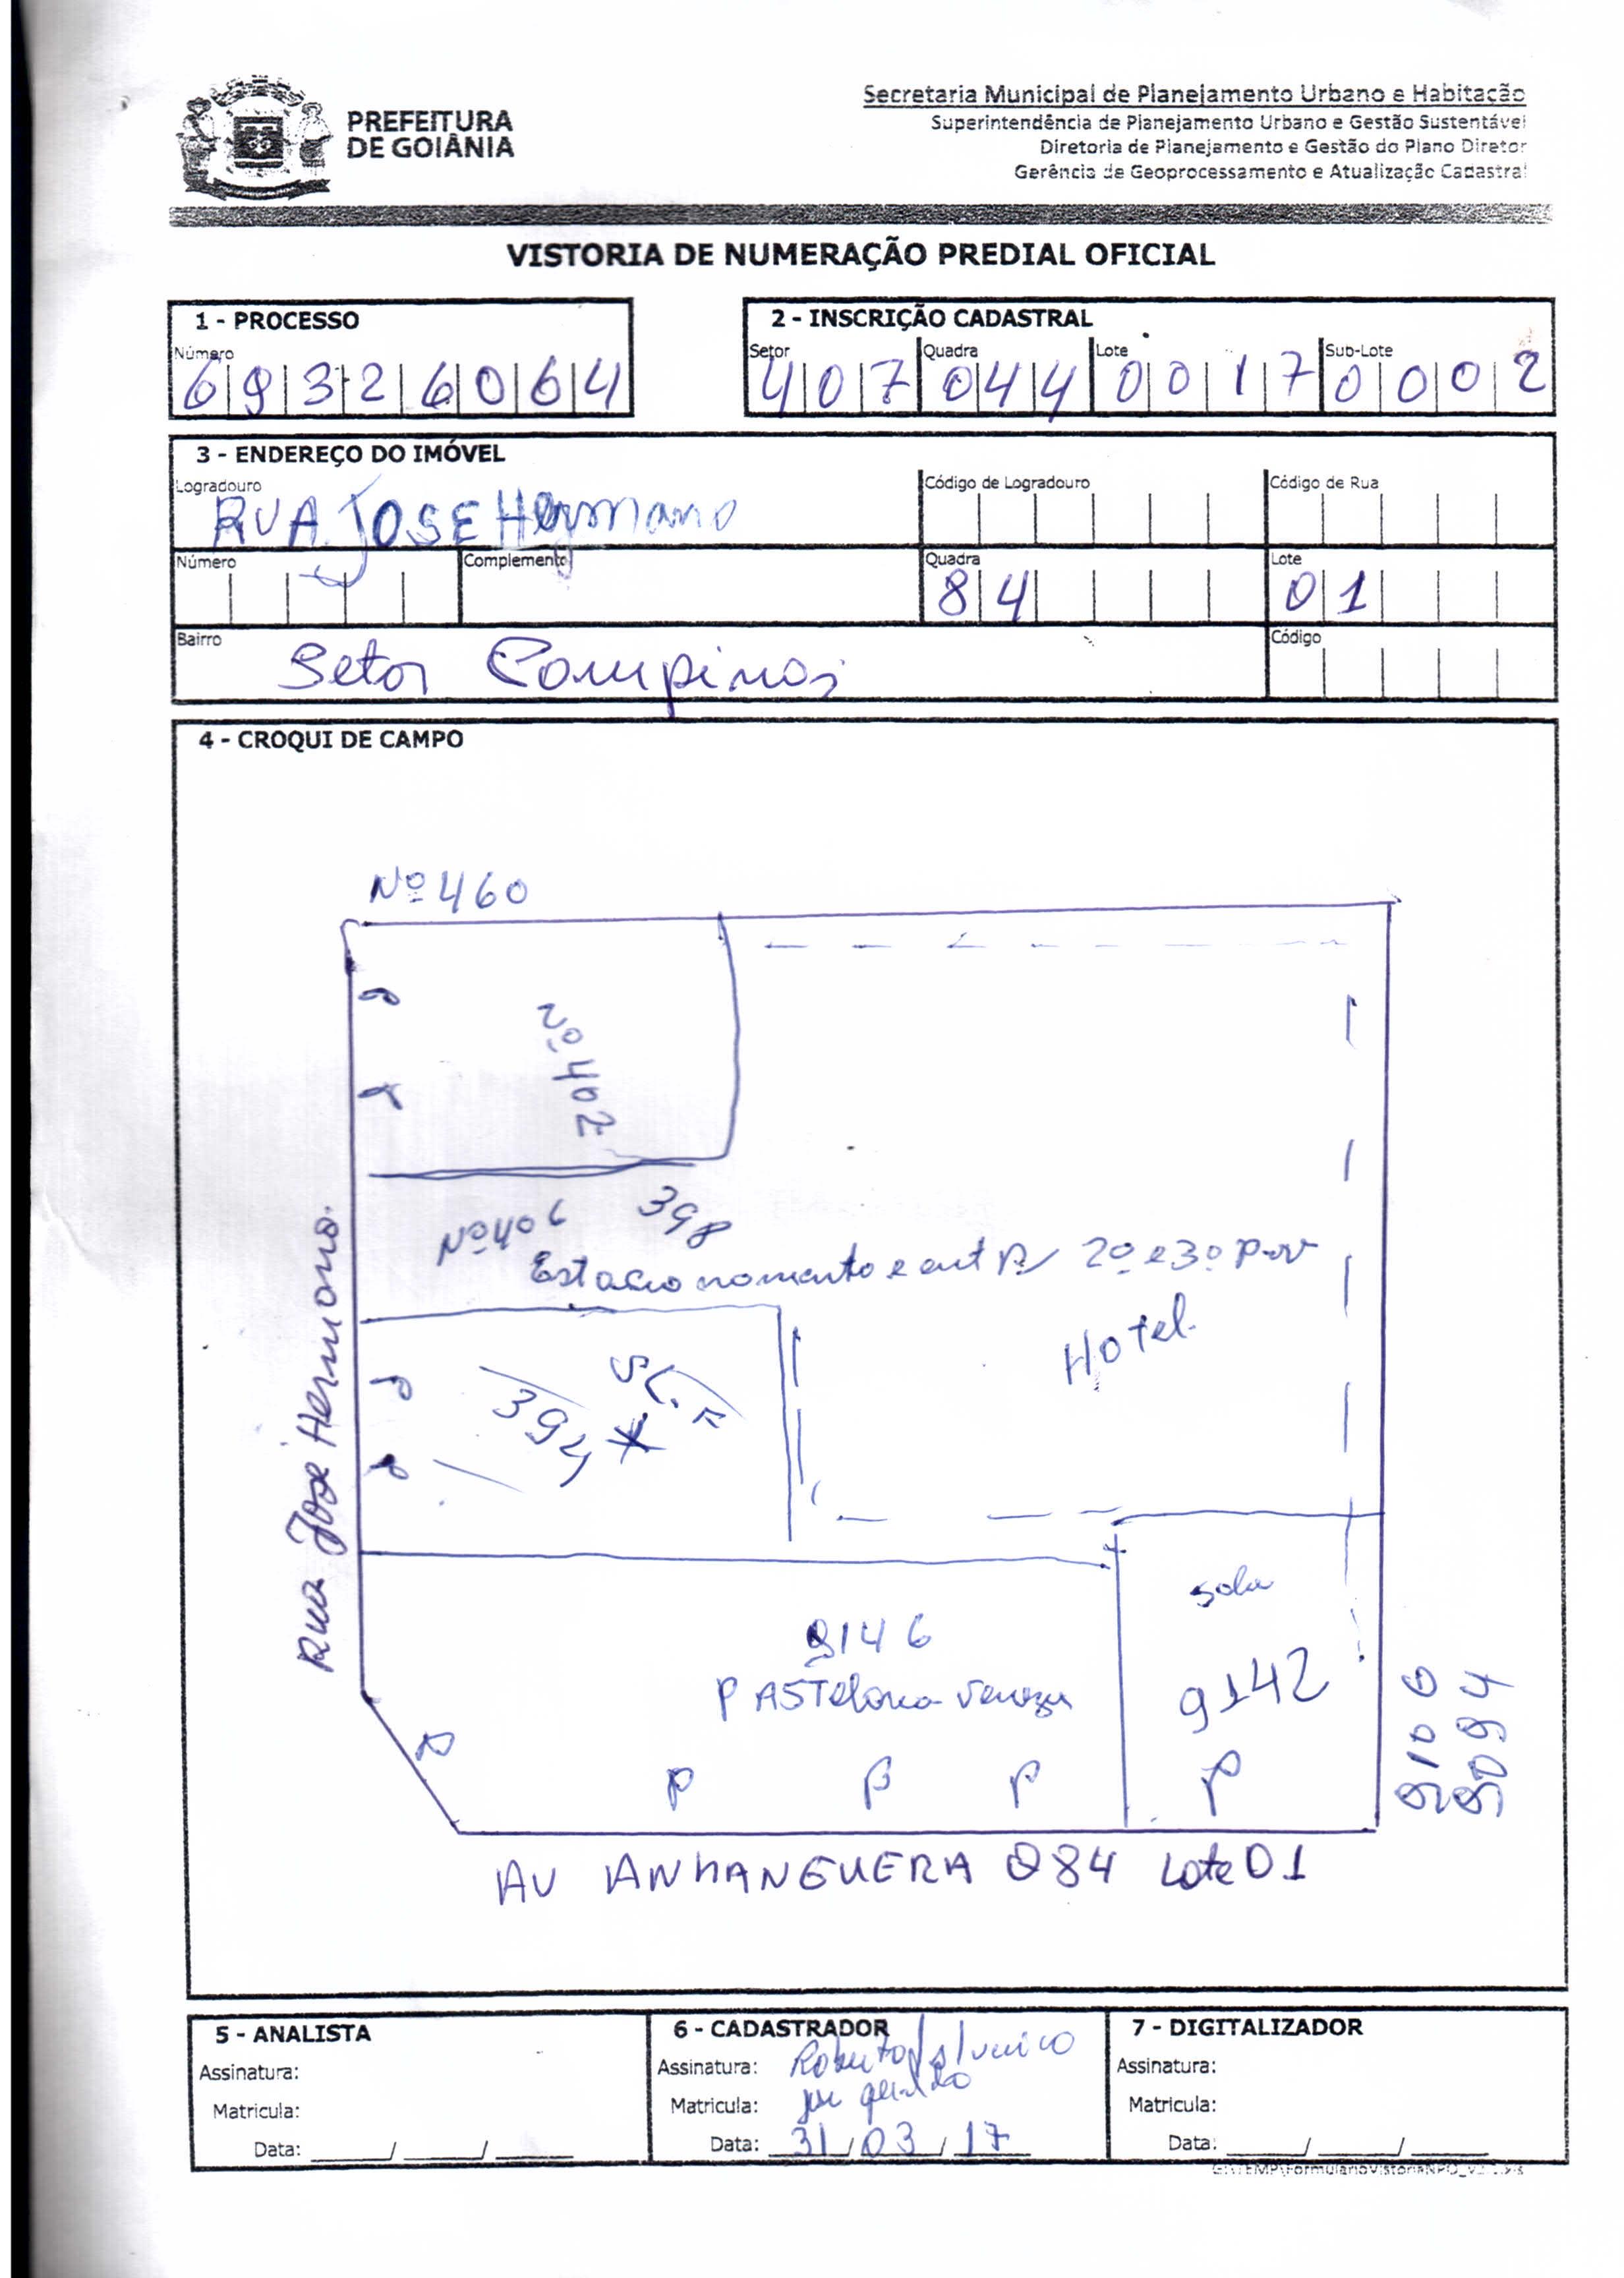 PREFEITURA
DE GOIÂNIA
Secretaria Municipal de Planejamento Urbano e Habitação
Superintendência de Planejamento Urbano e Gestão Sustentável
Diretoria de Planejamento e Gestão do Plano Diretor
Gerência de Geoprocessamento e Atualização Cadastral
VISTORIA DE NUMERAÇÃO PREDIAL OFICIAL
1 - PROCESSO
Número
69326064
2 - INSCRIÇÃO CADASTRAL
Setor Quadra Lote Sub-Lote
407 044 0017 0002
3 - ENDEREÇO DO IMÓVEL
Logradouro Código de Logradouro Código de Rua
RUA JOSE Hermano
Número Complemento Quadra Lote
84 01
Bairro Código
Setor Campinas
4 - CROQUI DE CAMPO
Nº 460
Nº 402
Nº 406 398
Estacionamento e ent p/ 2º e 3º pav
Hotel
SL. F
394 *
P
P
Rua José Hermano.
sala
9146
PASTelaria
9142
P P P P
9106
9094
AV ANHANGUERA Q84 Lote 01
5 - ANALISTA
Assinatura:
Matricula:
Data: ___/___/___
6 - CADASTRADOR
Assinatura: Roberto
Matricula:
Data: 31/03/17
7 - DIGITALIZADOR
Assinatura:
Matricula:
Data: ___/___/___